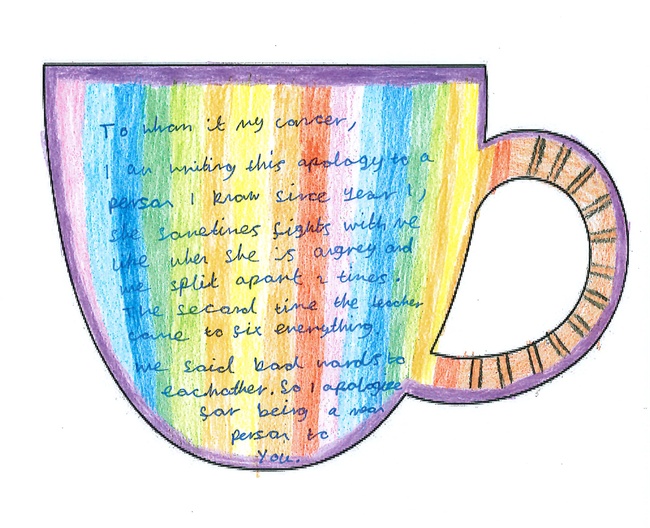 To whom it my concer,
I am writing this apology to a
person I know since year 1,
she sometimes fights with me
like when she is angrey and
we split apart 2 times.
The second time the teacher
came to six everything
we said bad words to
eachother. So I apologee
for being a mean
person to
You.